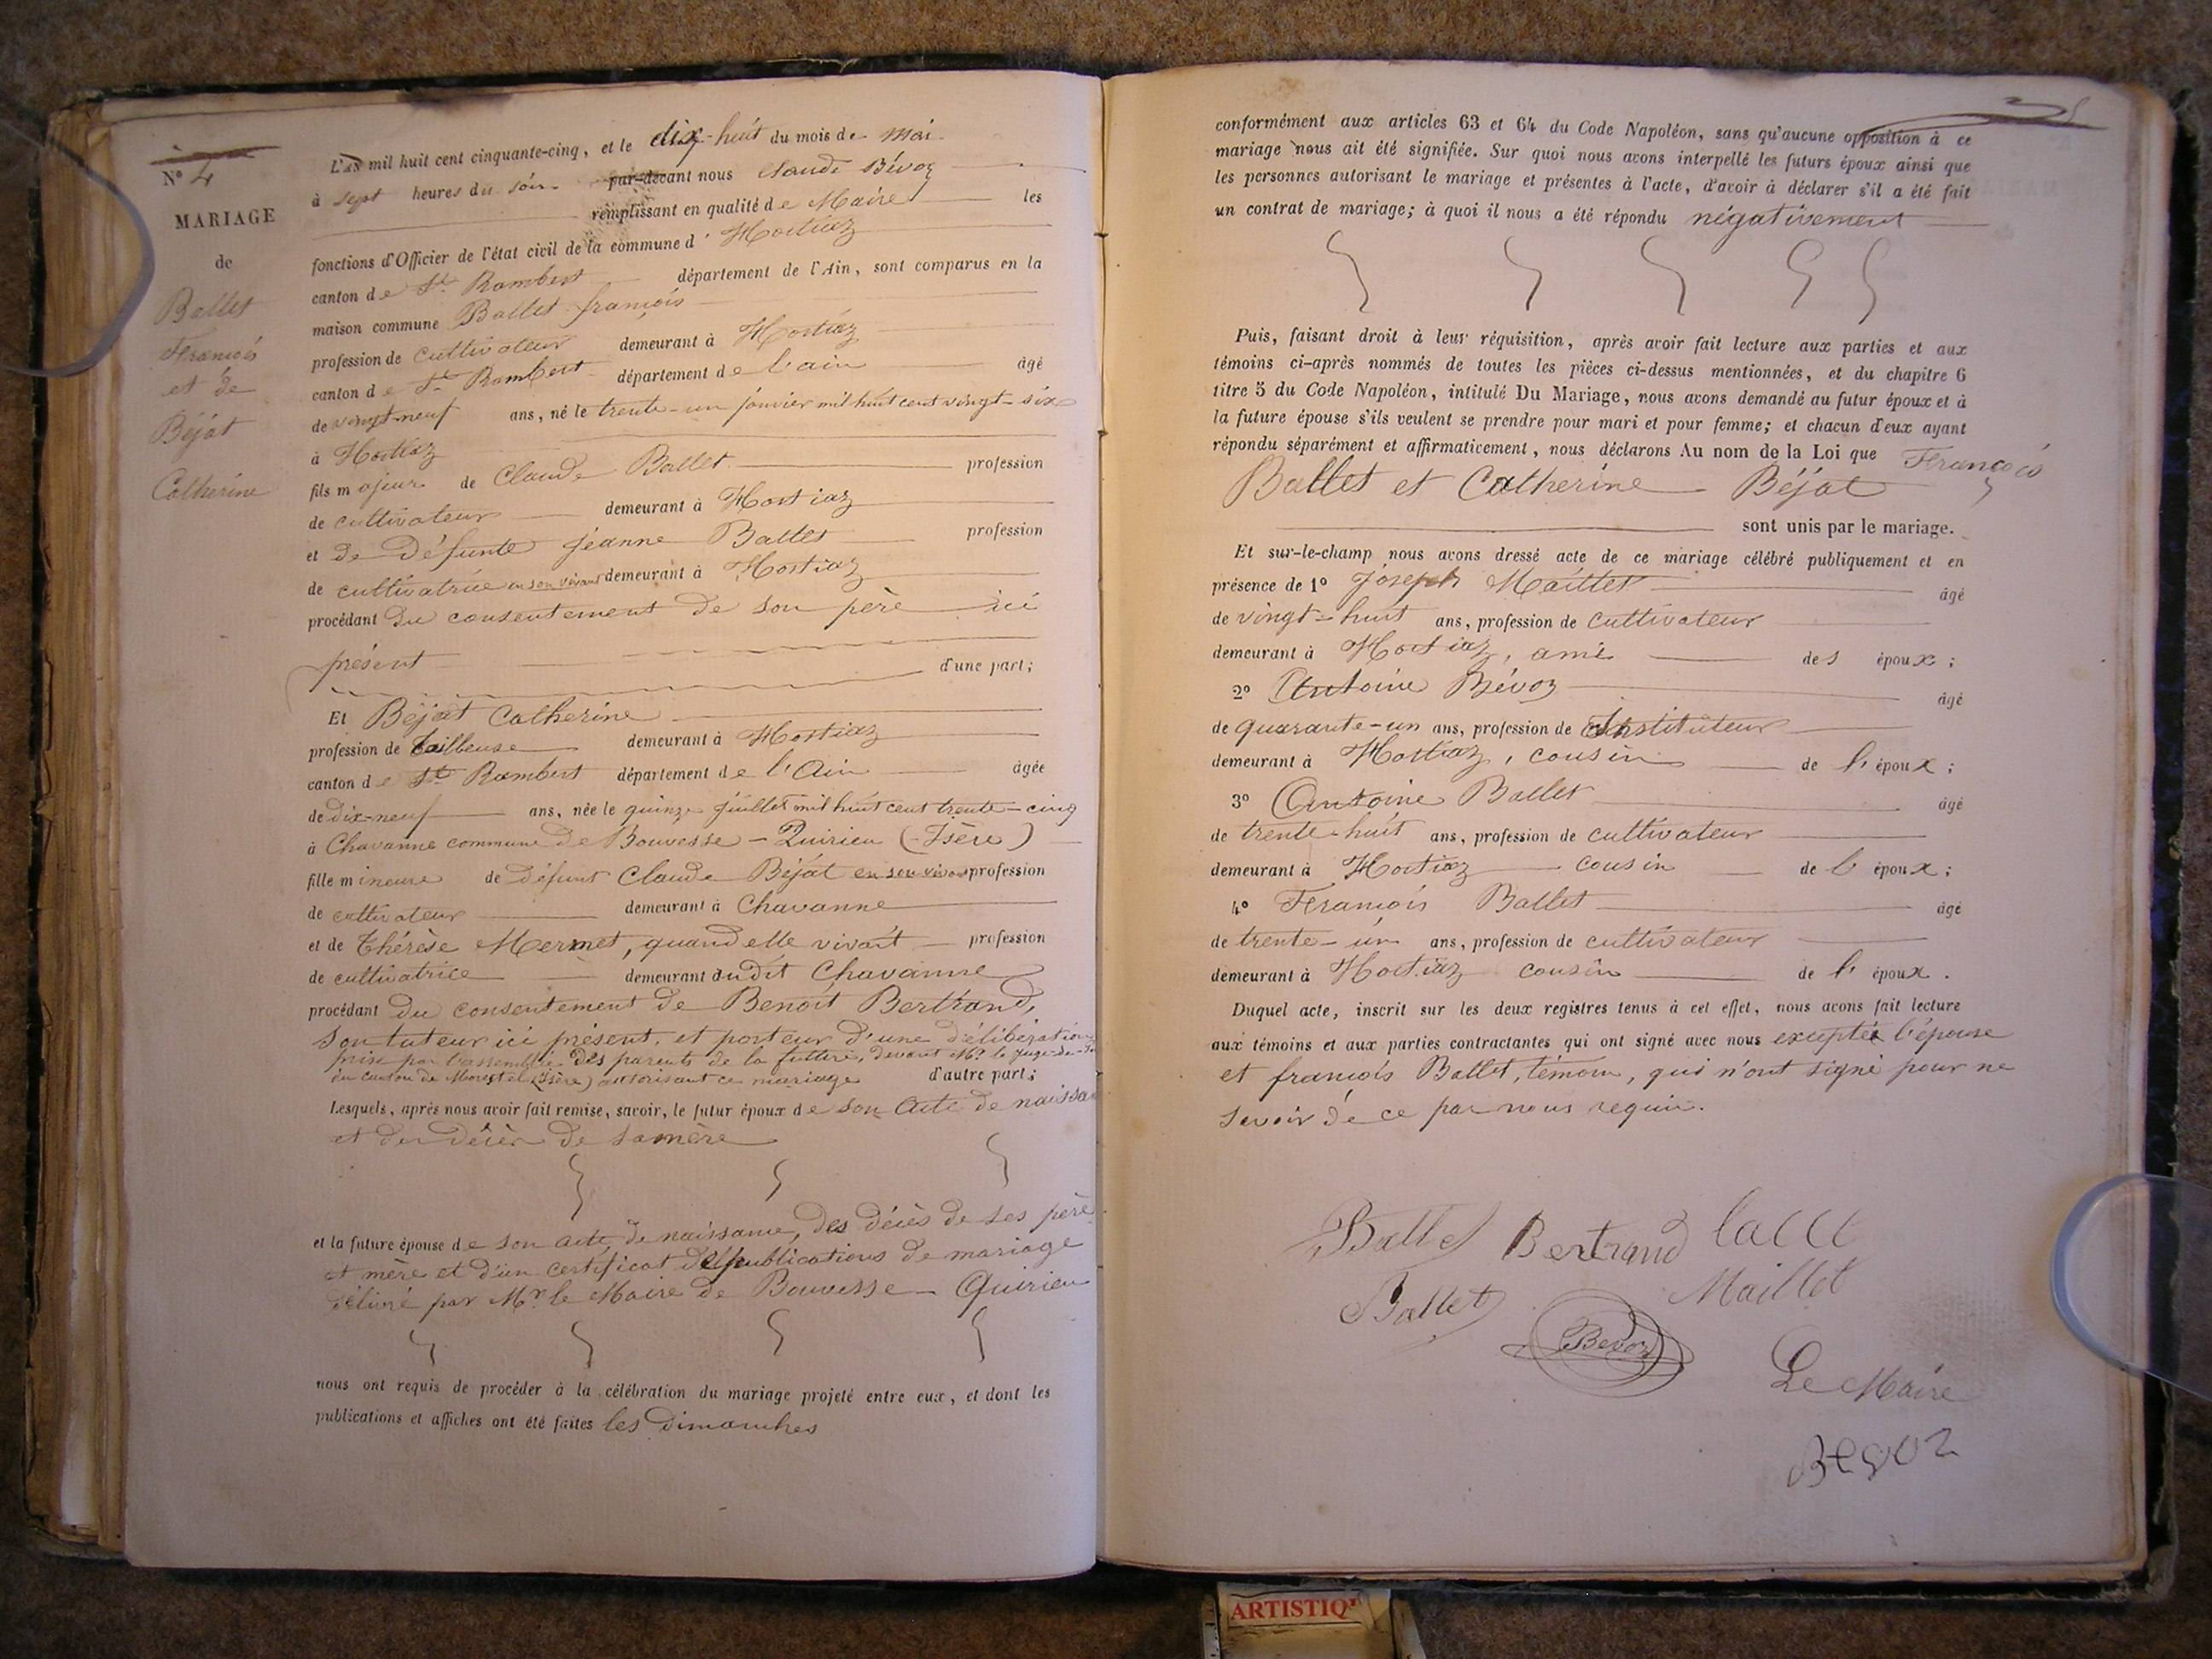 N° 4
MARIAGE
de
Ballet
François
et de
Béjat
Catherine
L'AN mil huit cent cinquante-cinq, et le dix-huit du mois de mai
à sept heures du soir par-devant nous Claude Bévoz
remplissant en qualité de Maire les
fonctions d'Officier de l'état civil de la commune d'Hostiaz
canton de St. Rambert département de l'Ain, sont comparus en la
maison commune Ballet françois
profession de cultivateur demeurant à Hostiaz
canton de St. Rambert département de l'ain âgé
de vingt-neuf ans, né le trente-un janvier mil huit cent vingt-six
à Hostiaz
fils majeur de Claude Ballet profession
de cultivateur demeurant à Hostiaz
et de défunte jeanne Ballet profession
de cultivatrice en son vivant demeurant à Hostiaz
procédant du consentement de son père ici
présent d'une part;
Et Béjat Catherine
profession de tailleuse demeurant à Hostiaz
canton de St. Rambert département de l'Ain âgée
de dix-neuf ans, née le quinze juillet mil huit cent trente-cinq
à Chavanne commune de Bouvesse-Quirieu (Isère)
fille mineure de défunt Claude Béjat en son vivant profession
de cultivateur demeurant à Chavanne
et de Thérèse Mermet, quand elle vivait profession
de cultivatrice demeurant audit Chavanne
procédant du consentement de Benoit Bertrand,
son tuteur ici présent, et porteur d'une délibération
prise par l'assemblée des parents de la future, devant Mr. le juge-de-
du canton de Morestel (Isère) autorisant ce mariage d'autre part;
Lesquels, après nous avoir fait remise, savoir, le futur époux de son acte de naissan
et du décès de sa mère
et la future épouse de son acte de naissance, des décès de ses père
et mère et d'un certificat des publications de mariage
délivré par Mr. le Maire de Bouvesse-Quirieu
nous ont requis de procéder à la célébration du mariage projeté entre eux, et dont les
publications et affiches ont été faites les dimanches
conformément aux articles 63 et 64 du Code Napoléon, sans qu'aucune opposition à ce
mariage nous ait été signifiée. Sur quoi nous avons interpellé les futurs époux ainsi que
les personnes autorisant le mariage et présentes à l'acte, d'avoir à déclarer s'il a été fait
un contrat de mariage; à quoi il nous a été répondu négativement
Puis, faisant droit à leur réquisition, après avoir fait lecture aux parties et aux
témoins ci-après nommés de toutes les pièces ci-dessus mentionnées, et du chapitre 6
titre 5 du Code Napoléon, intitulé Du Mariage, nous avons demandé au futur époux et à
la future épouse s'ils veulent se prendre pour mari et pour femme; et chacun d'eux ayant
répondu séparément et affirmativement, nous déclarons Au nom de la Loi que François
Ballet et Catherine Béjat
sont unis par le mariage.
Et sur-le-champ nous avons dressé acte de ce mariage célébré publiquement et en
présence de 1° joseph Maillet âgé
de vingt-huit ans, profession de cultivateur
demeurant à Hostiaz, ami des époux;
2° Antoine Bévoz âgé
de quarante-un ans, profession de Instituteur
demeurant à Hostiaz, cousin de l'époux;
3° Antoine Ballet âgé
de trente-huit ans, profession de cultivateur
demeurant à Hostiaz cousin de l'époux;
4° François Ballet âgé
de trente-un ans, profession de cultivateur
demeurant à Hostiaz cousin de l'époux.
Duquel acte, inscrit sur les deux registres tenus à cet effet, nous avons fait lecture
aux témoins et aux parties contractantes qui ont signé avec nous exceptés l'épouse
et françois Ballet, témoin, qui n'ont signé pour ne
savoir de ce par nous requis.
Ballet Bertrand
Ballet Maillet
Bévoz
Le Maire
Bevoz
ARTISTIQ